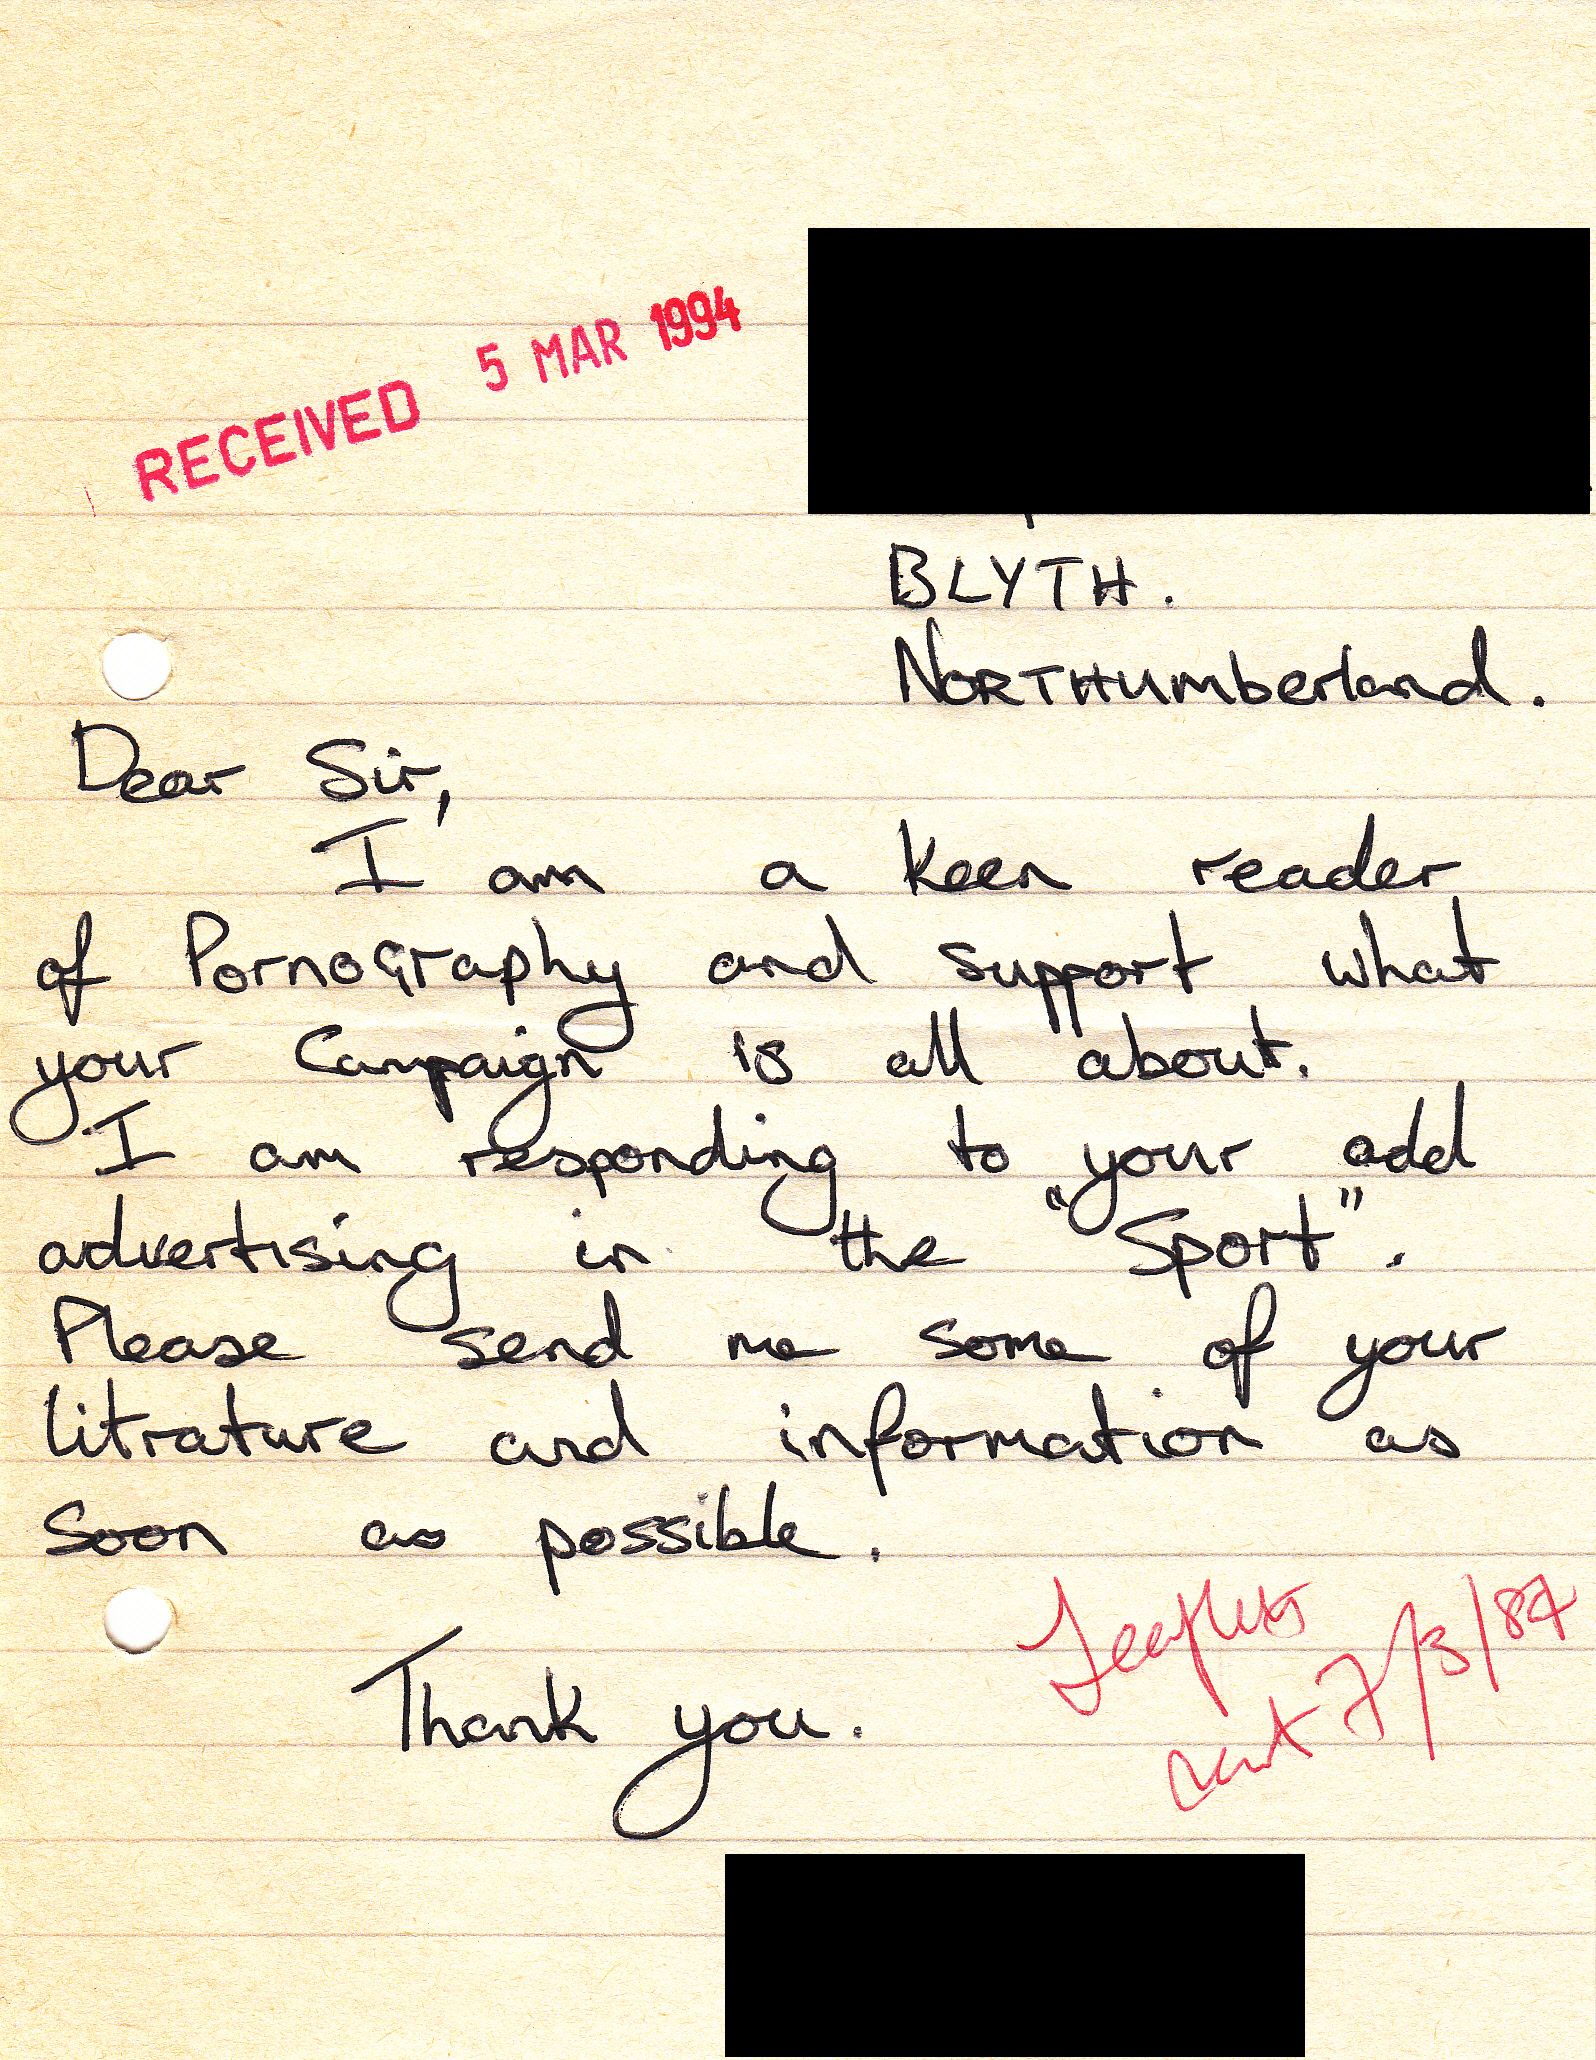 RECEIVED 5 MAR 1994
BLYTH.
NORTHumberland.
Dear Sir,
I am a keen reader
of Pornography and support what
your Campaign is all about.
I am responding to your add
advertising in the "Sport".
Please send me some of your
litrature and information as
soon as possible.
Thank you.
Leaflets
sent 7/3/84